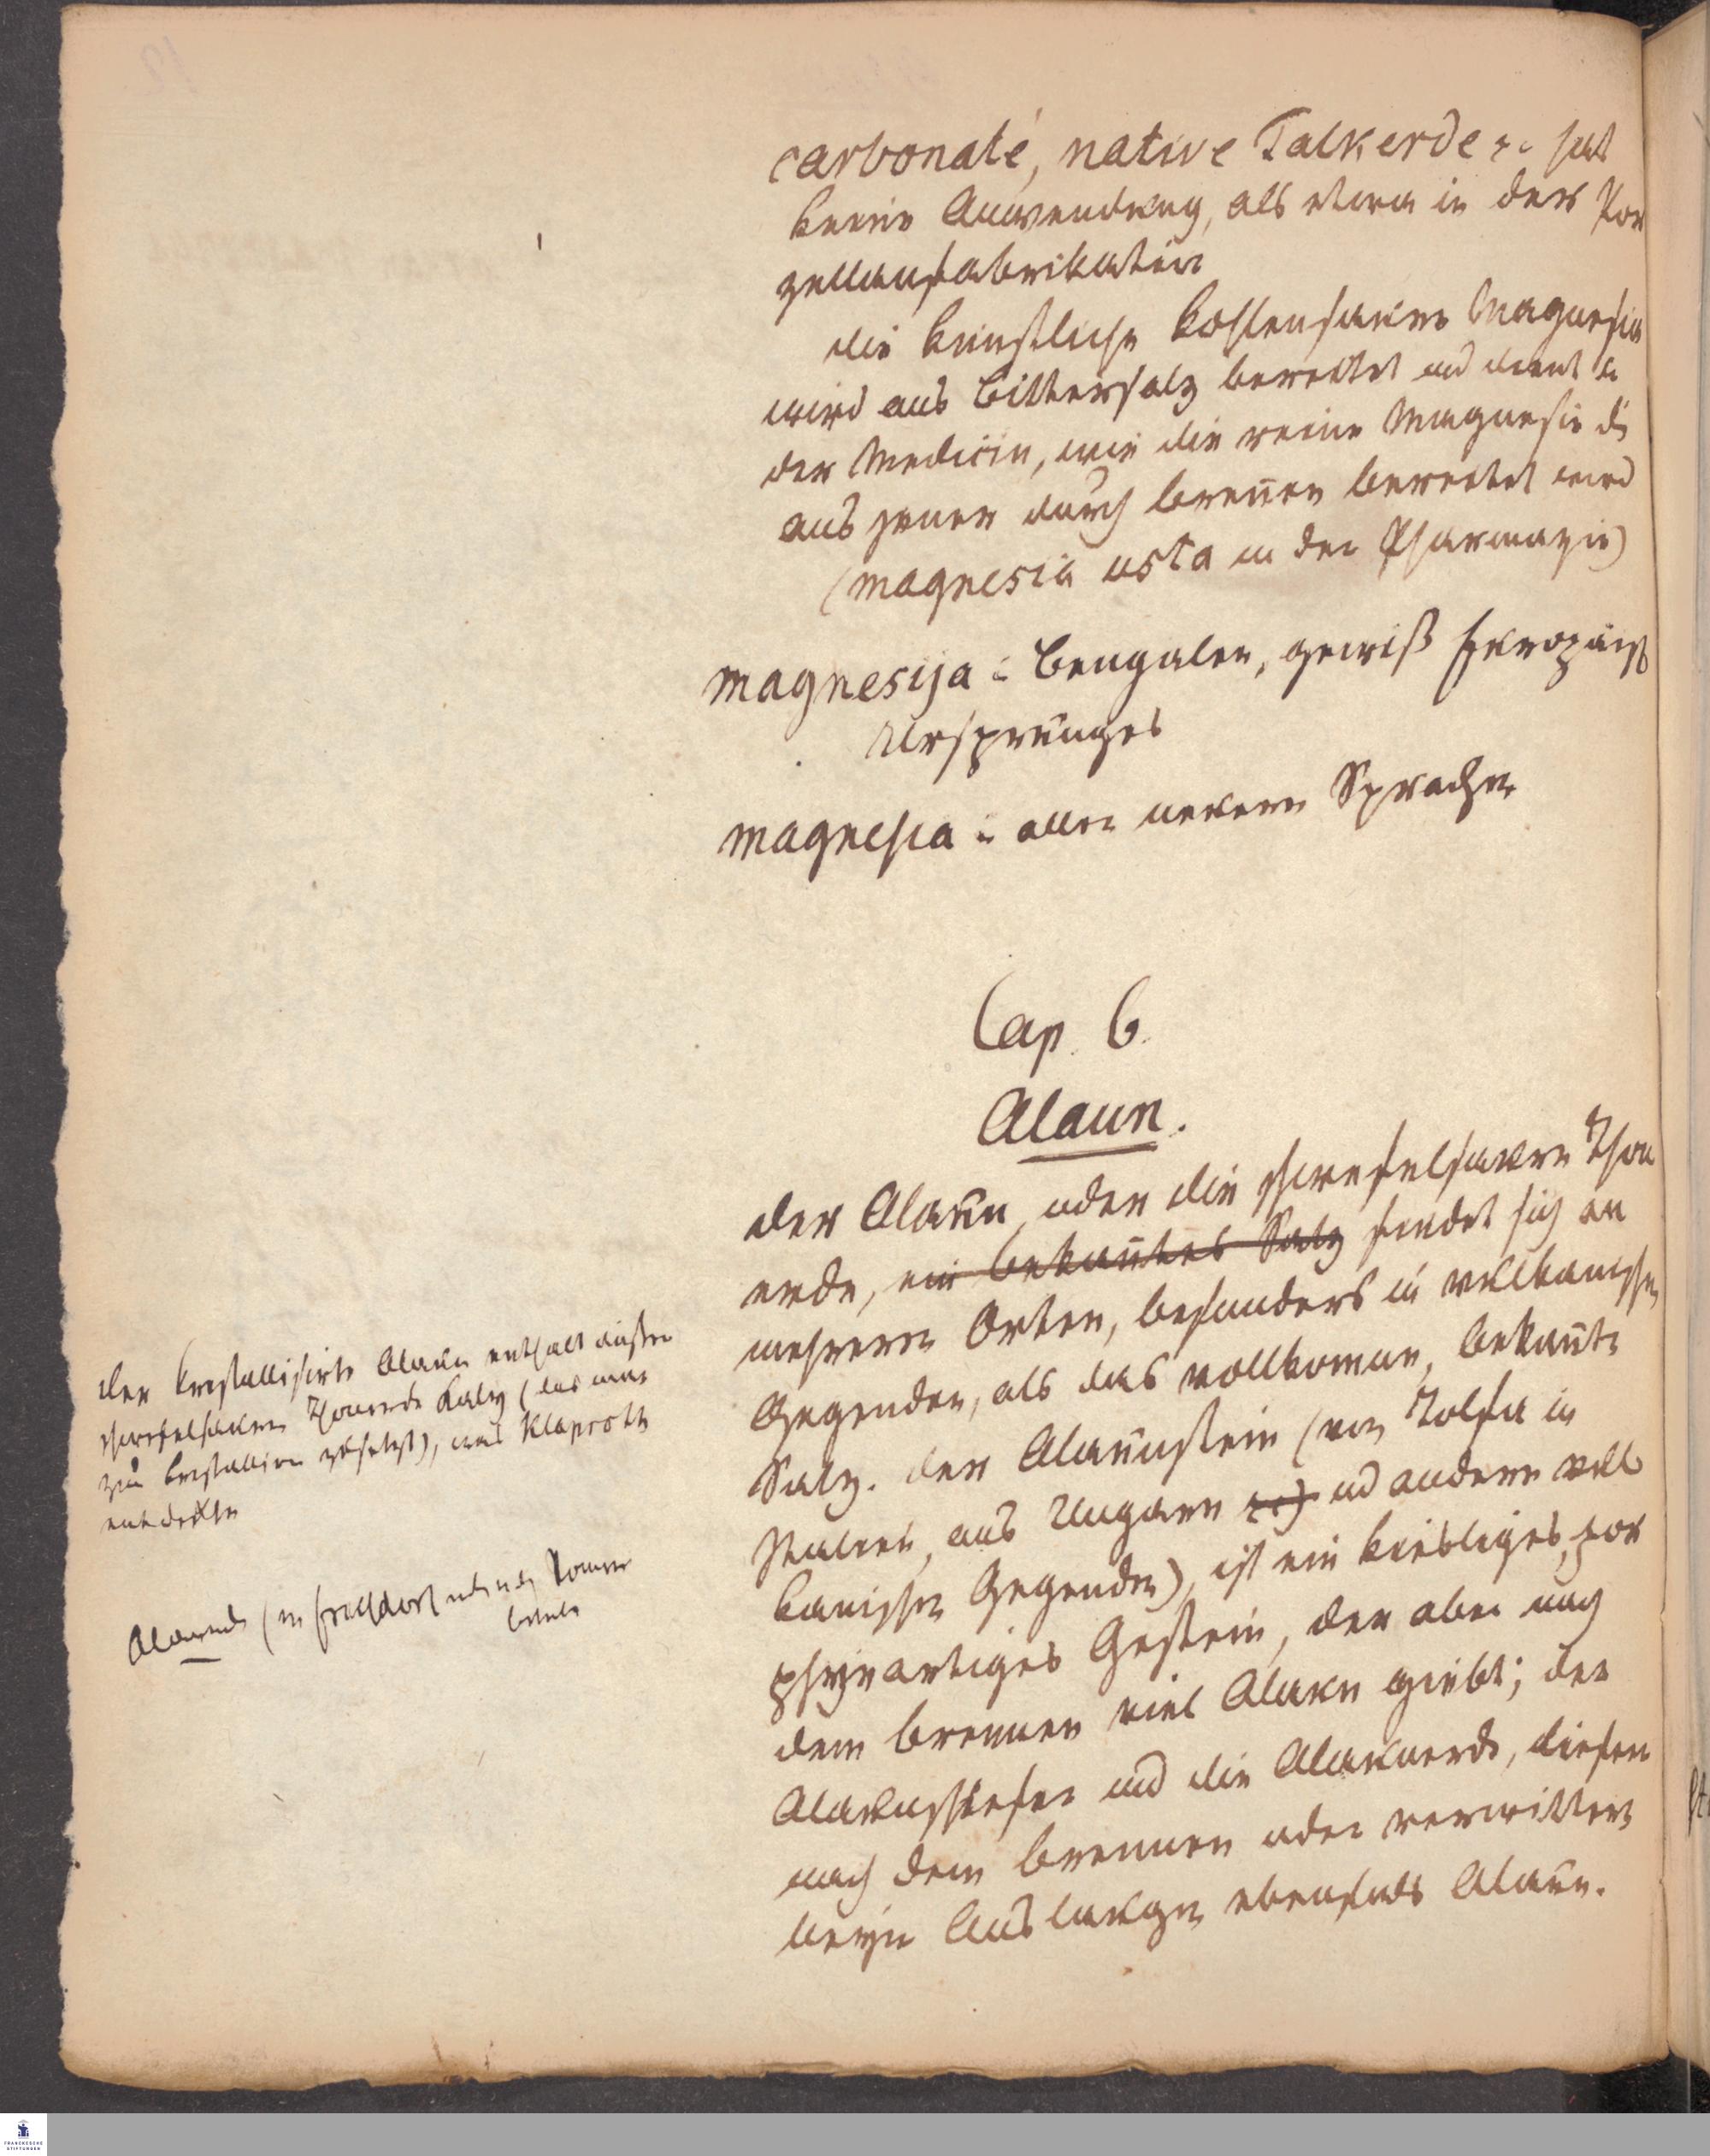 carbonaté, native Talkerde ꝛc hat
keine Anwendung, als etwa in der Por
zellanfabrikation
die künstliche kohlensaure Magnesia
wird aus Bittersalz bereitet und dient in
der Medicin, wie die reine Magnesia die
aus jener durch brennen bereitet wird
(magnesia usta in der Pharmazie)
magnesija in Bengalen, gewiß Europäisch
Ursprunges
magnesia in allen neuern Sprachen
Cap. 6.
Alaun.
der Alaun, oder die schwefelsaure Thon
erde, ein bekanntes Salz findet sich an
mehreren Orten, besonders in vulkanischen
Gegenden, als das vollkommen, bekannte
Salz. der Alaunstein (von Tolfa in
Italien, aus Ungarn ꝛc) und andern vul
kanischen Gegenden), ist ein kiesliges, por
phyrartiges Gestein, der aber nach
dem brennen viel Alaun giebt; der
Alaunschiefer und die Alaunerde, liefern
nach dem brennen oder verwittern
beym Auslaugen ebenfals Alaun.
der krystallisirte Alaun enthalt außer
schwefelsaurer Thonerde Kaly (das man
zum krystallisiren zusetzt), was Klaproth
entdeckte
Alaunerde (in
FRANCKESCHE
STIFTUNGEN